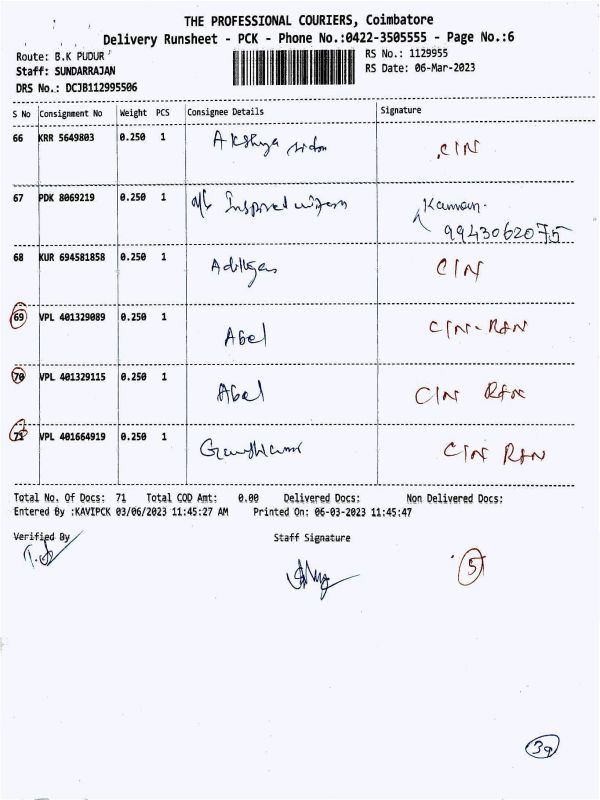 THE PROFESSIONAL COURIERS, Coimbatore
Delivery Runsheet - PCK - Phone No.:0422-3505555 - Page No.:6
Route: B.K PUDUR RS No.: 1129955
Staff: SUNDARRAJAN RS Date: 06-Mar-2023
DRS No.: DCJB112995506
S No Consignment No Weight PCS Consignee Details Signature
66 KRR 5649803 0.250 1 Akshya CIN
67 PDK 8069219 0.250 1 Kannan.
9943062075
68 KUR 694581858 0.250 1 CIN
69 VPL 401329089 0.250 1 Abel CIN-RAN
70 VPL 401329115 0.250 1 Abel CIN RAN
71 VPL 401664919 0.250 1 CIN RAN
Total No. Of Docs: 71 Total COD Amt: 0.00 Delivered Docs: Non Delivered Docs:
Entered By :KAVIPCK 03/06/2023 11:45:27 AM Printed On: 06-03-2023 11:45:47
Verified By Staff Signature
5
39